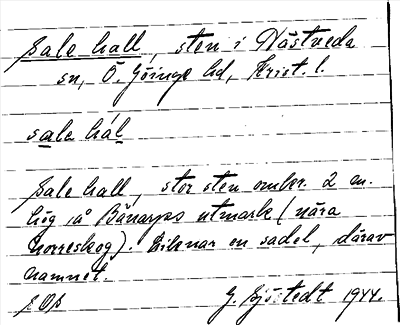 Sale hall, sten i Nästveda
sn, Ö. Göinge hd, Krist. l.
sale hál
Sale hall, stor sten omkr. 2 m.
hög på Bänarps utmark (nära
Norreskog). Liknar en sadel, därav
namnet.
G. Sjöstedt 1944.